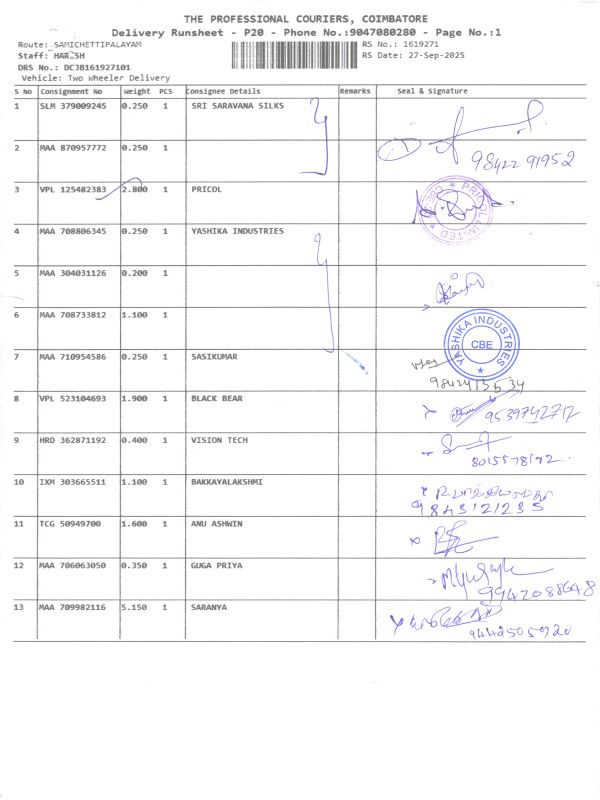 THE PROFESSIONAL COURIERS, COIMBATORE
Delivery Runsheet - P20 - Phone No.:9047080280 - Page No.:1
Route: SAMICHETTIPALAYAM RS No.: 1619271
Staff: HARISH RS Date: 27-Sep-2025
DRS No.: DCJB161927101
Vehicle: Two Wheeler Delivery
S No Consignment No Weight PCS Consignee Details Remarks Seal & Signature
1 SLM 379009245 0.250 1 SRI SARAVANA SILKS
2 MAA 870957772 0.250 1
9842291952
3 VPL 125482383 2.800 1 PRICOL
PRICOL LIMITED
4 MAA 708806345 0.250 1 YASHIKA INDUSTRIES
5 MAA 304031126 0.200 1
6 MAA 708733812 1.100 1
YASHIKA INDUSTRIES CBE
7 MAA 710954586 0.250 1 SASIKUMAR
9842413534
8 VPL 523104693 1.900 1 BLACK BEAR
9539742717
9 HRD 362871192 0.400 1 VISION TECH
8015578192
10 IXM 303665511 1.100 1 BAKKAYALAKSHMI
9843121235
11 TCG 50949700 1.600 1 ANU ASHWIN
12 MAA 706063050 0.350 1 GUGA PRIYA
9942088648
13 MAA 709982116 5.150 1 SARANYA
9442505920